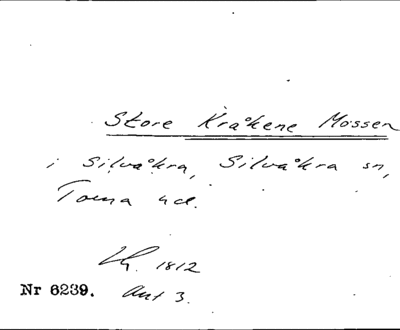 Store Kråkene Mossen
i Silvåkra, Silvåkra sn,
Torna hd.
1812
Nr 6239. Akt 3.